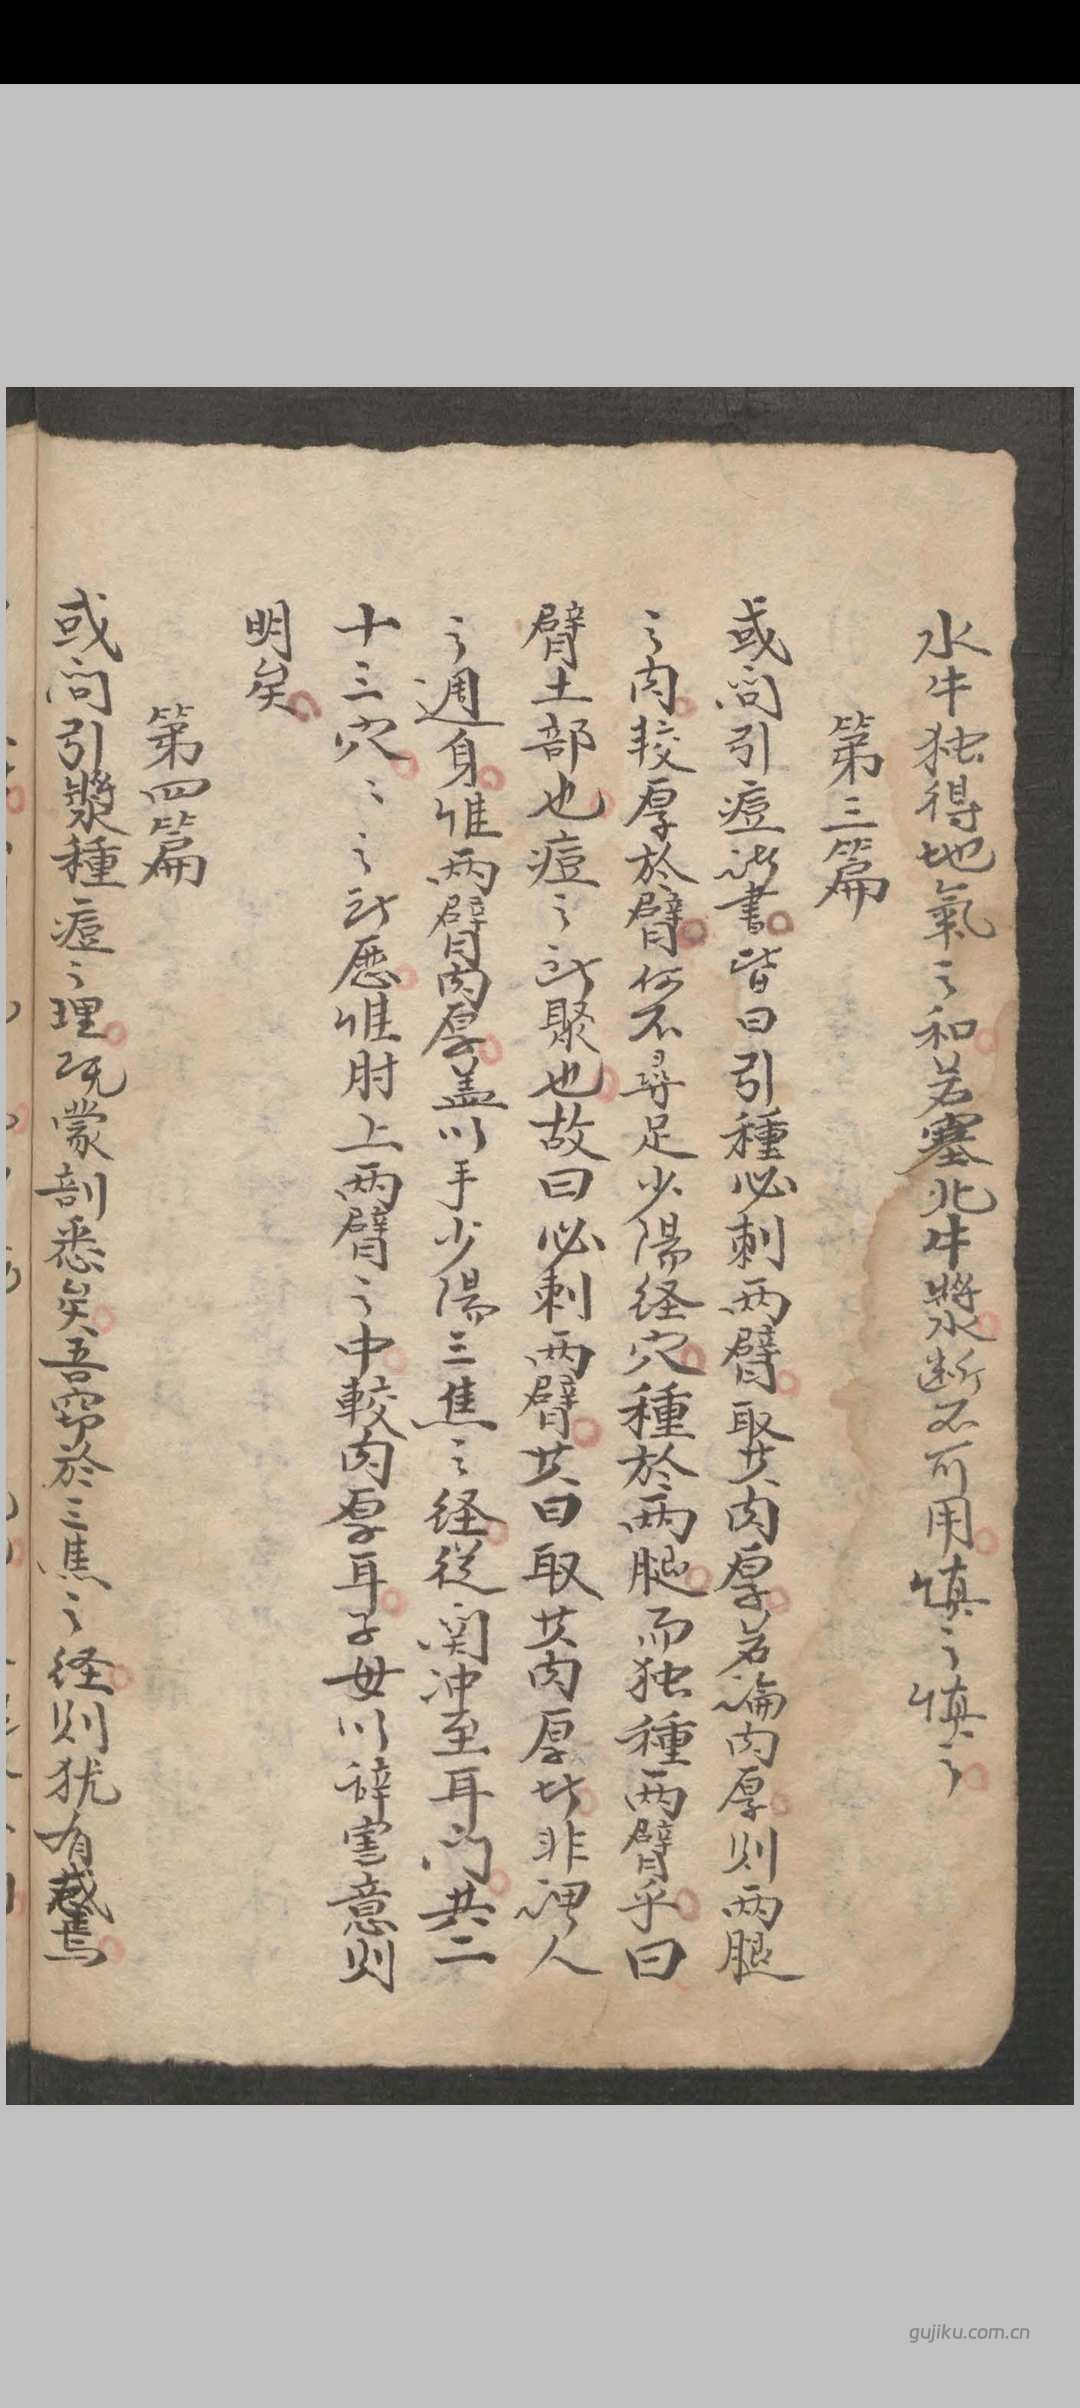 水牛独得地氣之和若塞北牛漿断不可用慎之慎之
第三篇
或问引痘諸書皆曰引種必刺两臂取其肉厚若論肉厚则两腿
之肉較厚於臂何不尋足少陽经穴種於两腿而独種两臂乎曰
臂土部也痘之所聚也故曰必刺两臂其曰取其肉厚者非謂人
之週身惟两臂肉厚盖以手少陽三焦之经從関冲至耳门共二
十三穴〻之所歷惟肘上两臂之中較肉厚耳子毋以辞害意则
明矣
第四篇
或问引漿種痘之理既蒙剖悉矣吾窃於三焦之经则犹有惑焉
gujiku.com.cn